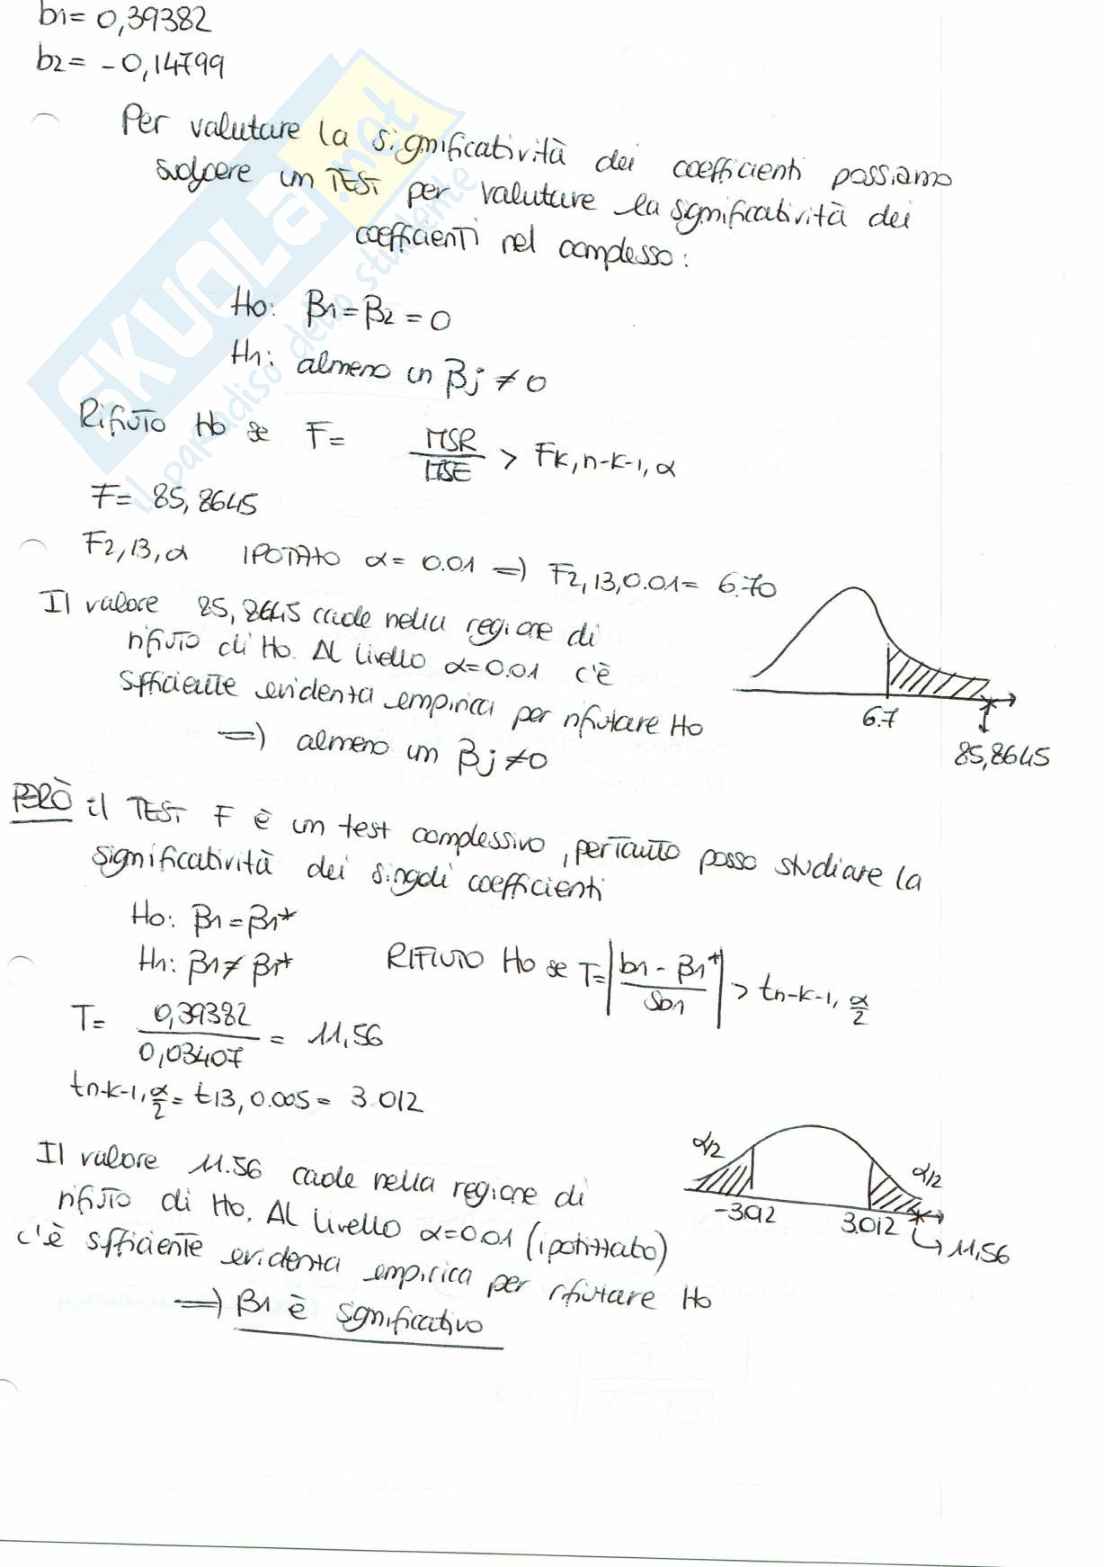 b1= 0,39382
b2= -0,14799
Per valutare la significatività dei coefficienti possiamo
svolgere un TEST per valutare la significatività dei
coefficienti nel complesso:
H0: β1=β2=0
H1: almeno un βj≠0
Rifiuto H0 se F= MSR/MSE > Fk,n-k-1,α
F= 85,8645
F2,13,α IPOTIZZO α= 0.01 => F2,13,0.01= 6.70
Il valore 85,8645 cade nella regione di
rifiuto di H0. Al livello α=0.01 c'è
sufficiente evidenza empirica per rifiutare H0
=> almeno un βj≠0
6.7
85,8645
PERÒ il TEST F è un test complessivo, pertanto posso studiare la
significatività dei singoli coefficienti
H0: β1=β1*
H1: β1≠β1*
RIFIUTO H0 se T=|b1-β1*/Sb1| > tn-k-1,α/2
T= 0,39382/0,03407 = 11,56
tn-k-1,α/2= t13,0.005= 3.012
Il valore 11.56 cade nella regione di
rifiuto di H0. Al livello α=0.01 (ipotizzato)
c'è sufficiente evidenza empirica per rifiutare H0
=> β1 è significativo
α/2
α/2
-3.012
3.012
11,56
SKUOLA.net
il paradiso dello studente